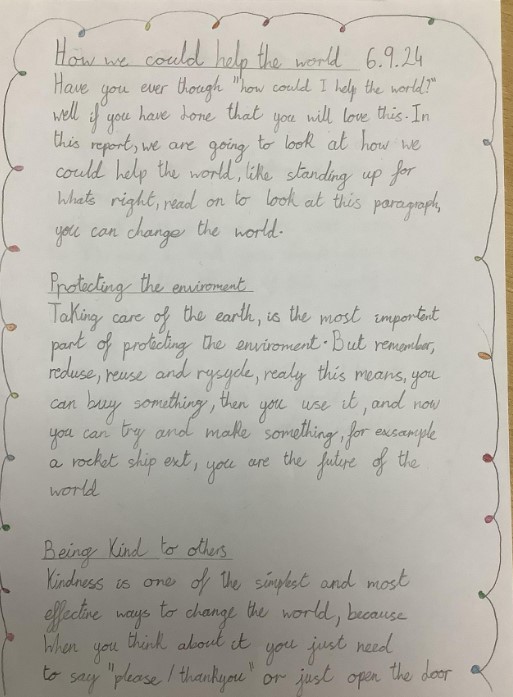 How we could help the world 6.9.24
Have you ever though "how could I help the world?"
well if you have done that you will love this. In
this report, we are going to look at how we
could help the world, like standing up for
whats right, read on to look at this paragraph,
you can change the world.
Protecting the enviroment
Taking care of the earth, is the most importent
part of protecting the enviroment. But remember,
reduse, reuse and rysycle, realy this means, you
can buy something, then you use it, and now
you can try and make something, for exsample
a rocket ship ext, you are the future of the
world
Being Kind to others
Kindness is one of the simplest and most
effective ways to change the world, because
when you think about it you just need
to say "please / thankyou" or just open the door